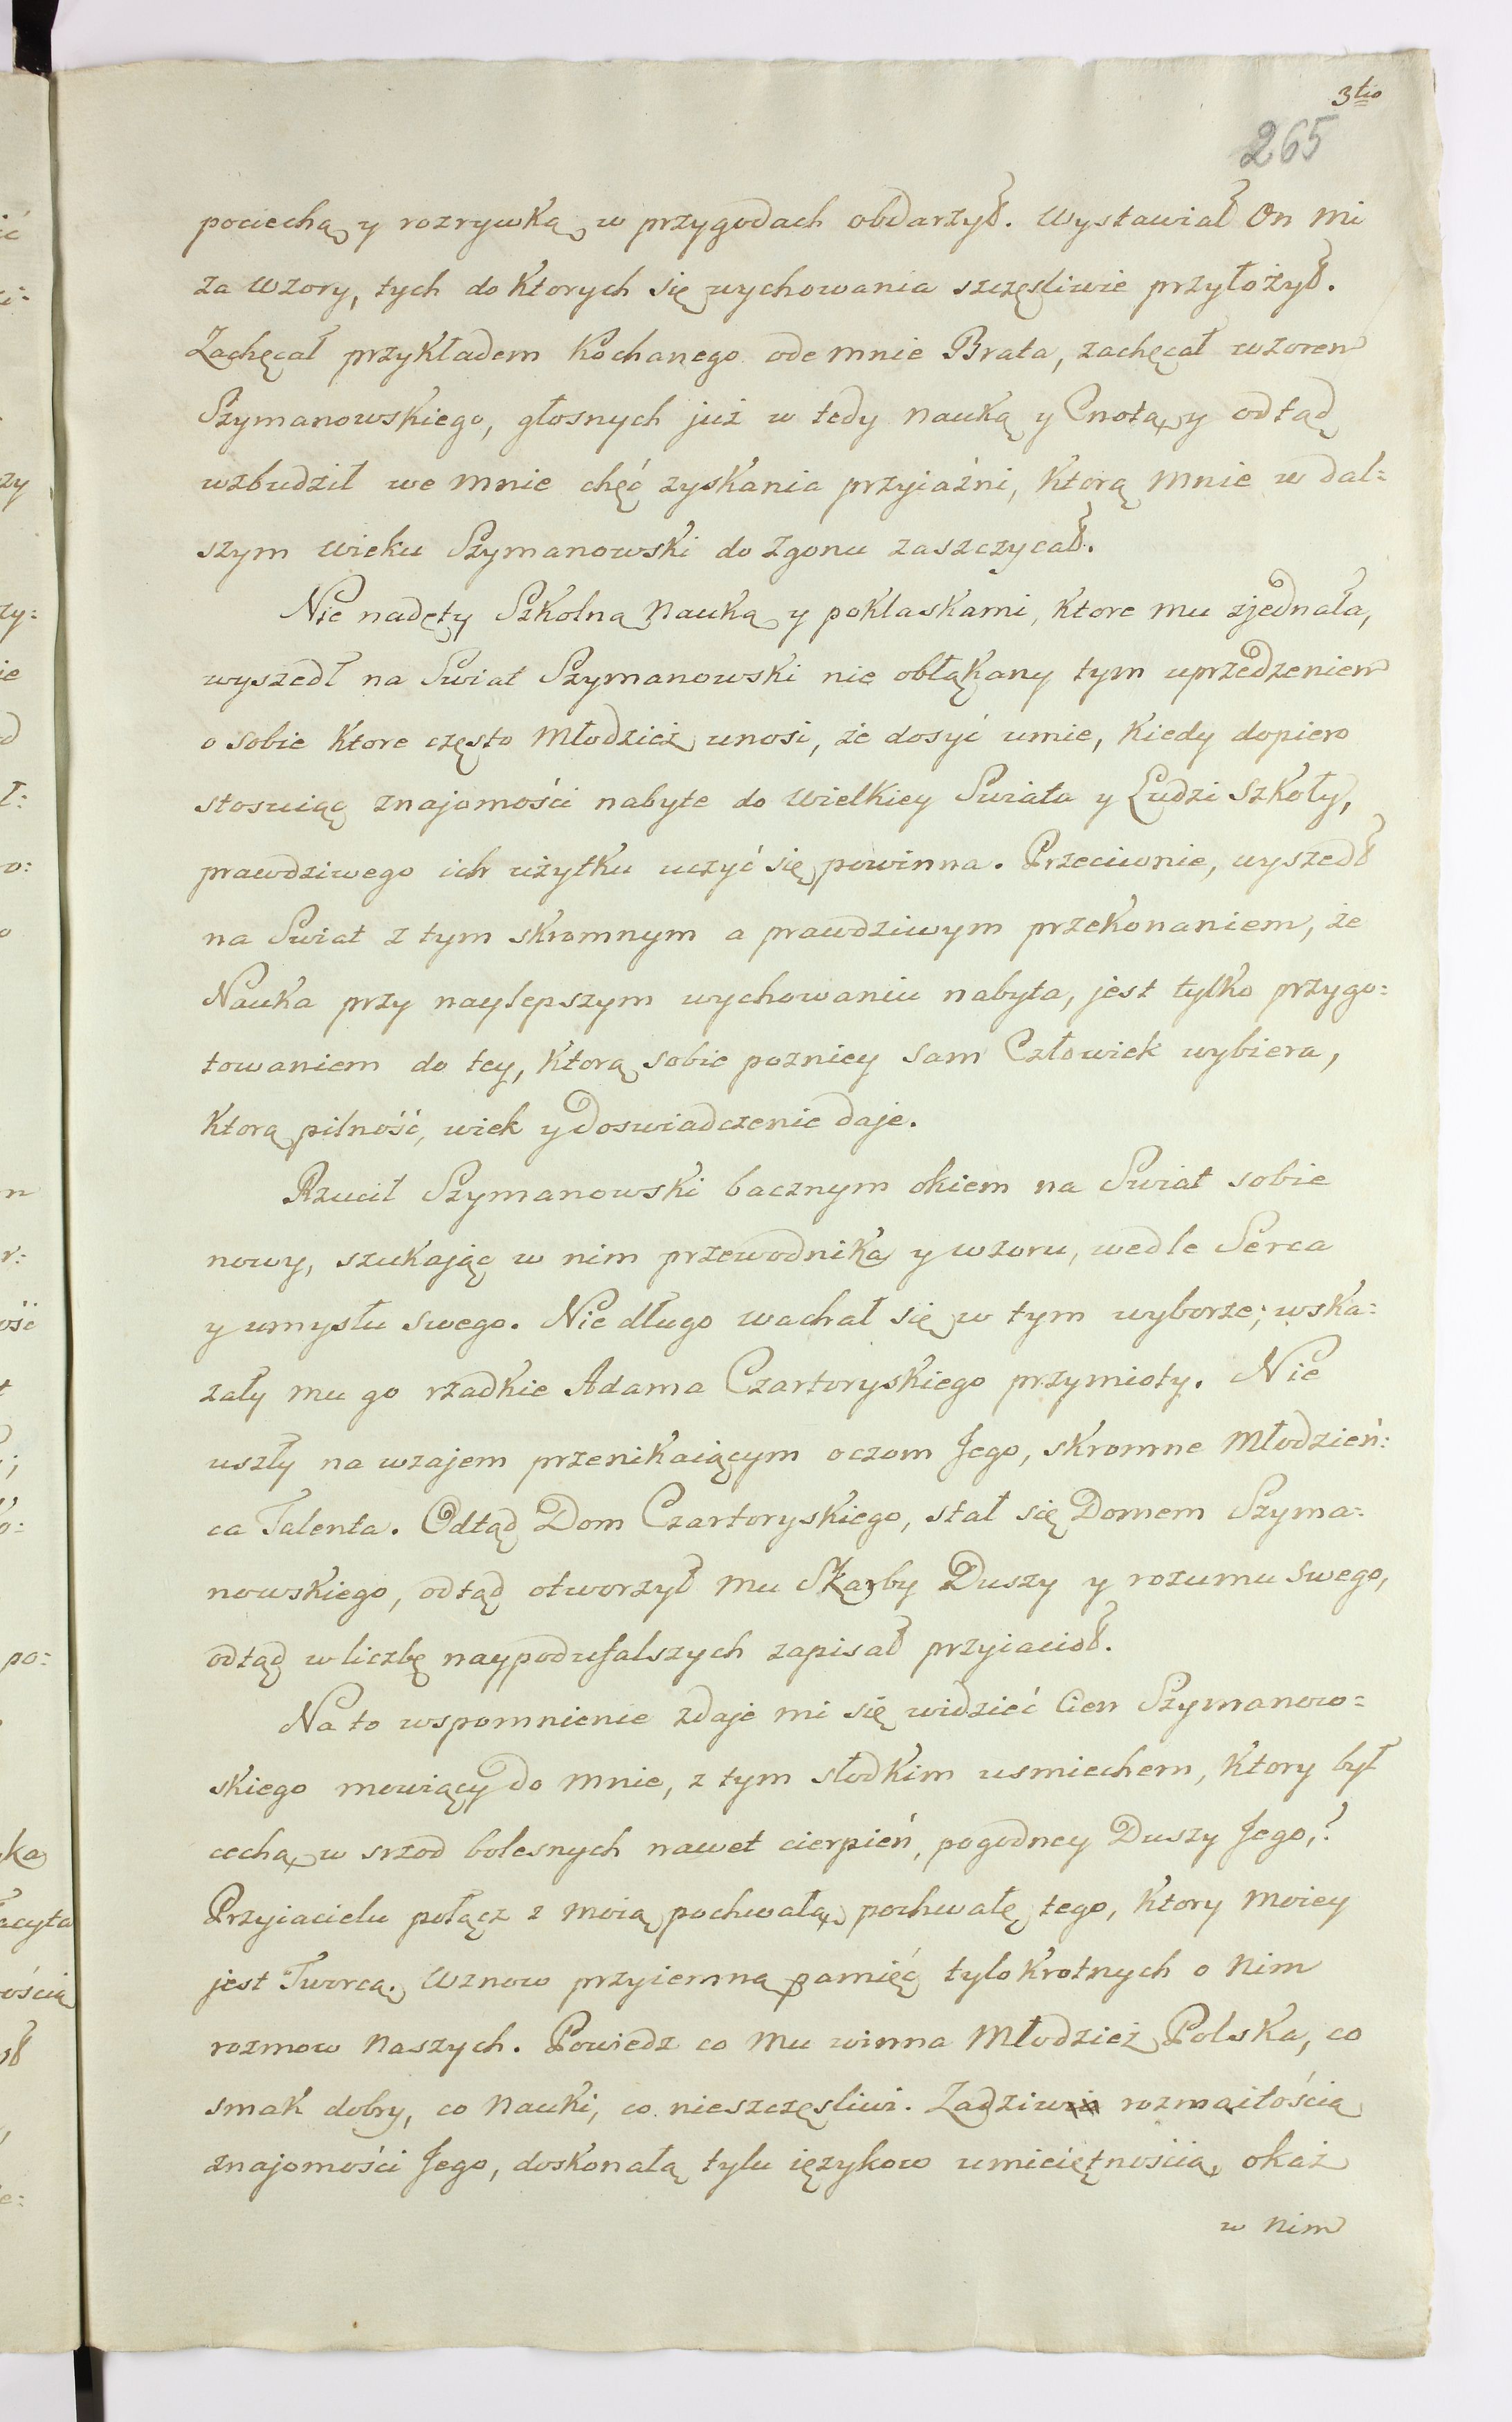 3tio
265
pociechą y rozrywką w przygodach obdarzył. Wystawiał On mi
za wzory, tych do ktorych się wychowania szczęsliwie przyłożył.
Zachęcał przykładem kochanego ode mnie Brata, zachęcał wzorem
Szymanowskiego, głosnych już w tedy nauką y Cnotą, y odtąd
wzbudził we mnie chęć zyskania przyiaźni, ktorą mnie w dal=
szym wieku Szymanowski do zgonu zaszczycał.
Nie nadęty Szkolną Nauką y poklaskami, ktore mu zjednała,
wyszedł na Swiat Szymanowski nie obłąkany tym uprzedzeniem
o sobie ktore często Młodzież unosi, że dosyć umie, kiedy dopiero
stosuiąc znajomości nabyte do Wielkiey Swiata y Ludzi Szkoły,
prawdziwego ich użytku uczyć się powinna. Przeciwnie, wyszedł
na Swiat z tym skromnym a prawdziwym przekonaniem, że
Nauka przy naylepszym wychowaniu nabyta, jest tylko przygo=
towaniem do tey, ktorą sobie pozniey sam Człowiek wybiera,
ktorą pilność, wiek y Doswiadczenie daje.
Rzucił Szymanowski bacznym okiem na Swiat sobie
nowy, szukając w nim przewodnika y wzoru, wedle Serca
y umysłu swego. Nie długo wachał się w tym wyborze; wska=
zały mu go rzadkie Adama Czartoryskiego przymioty. Nie
uszły na wzajem przenikaiącym oczom Jego, skromne Młodzień=
ca Talenta. Odtąd Dom Czartoryskiego, stał się Domem Szyma=
nowskiego, odtąd otworzył mu Skarby Duszy y rozumu swego,
odtąd w liczbę naypodufalszych zapisał przyiacioł.
Na to wspomnienie zdaje mi się widzieć Cien Szymanow=
skiego mowiący do mnie, z tym słodkim usmiechem, ktory był
cechą w srzod bolesnych nawet cierpień, pogodney Duszy Jego,?
Przyiacielu połącz z moią pochwałą, pochwałę tego, ktory moiey
jest Tworcą. Wznow przyiemną pamięć tylokrotnych o Nim
rozmow Naszych. Powiedz co Mu winna Młodzież Polska, co
smak dobry, co Nauki, co nieszczęsliwi. Zadziw rozmaitością
znajomości Jego, doskonałą tylu ięzykow umieiętnością, okaż
w Nim